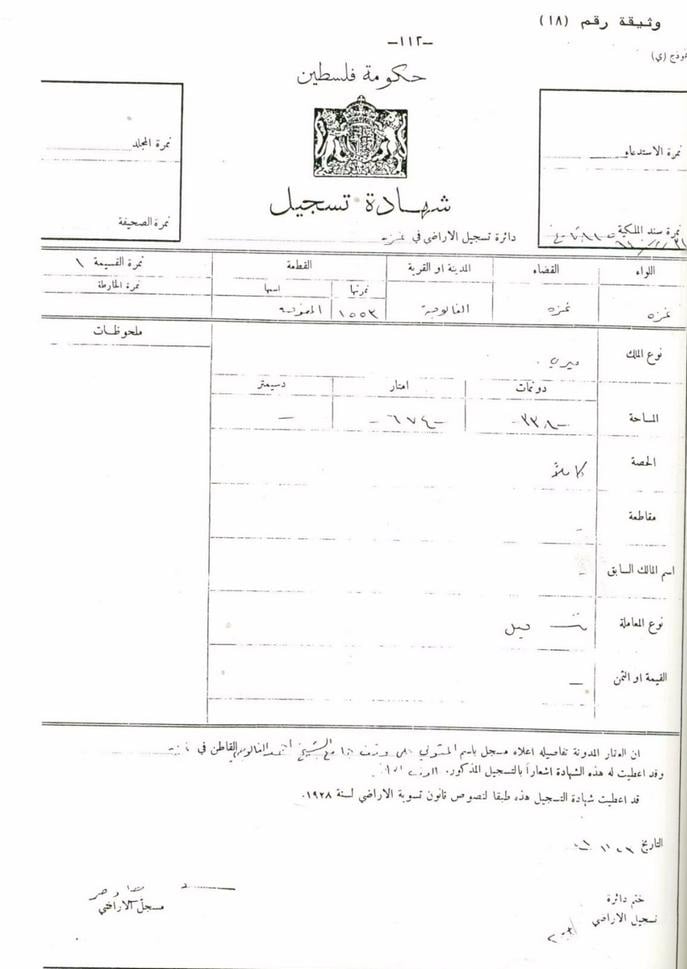 وثيقة رقم (١٨)
-١١٢-
نموذج (ي)
حكومة فلسطين
نمرة الاستدعاء
نمرة المجلد
شهادة تسجيل
نمرة سند الملكية
نمرة الصحيفة
دائرة تسجيل الاراضي في غزه
اللواء القضاء المدينة او القرية القطعة نمرة القسيمة ١
نمرتها اسمها نمرة الخارطة
غزه غزه الفالوجة ١٥٥٣
نوع الملك ميري ملحوظات
دونمات امتار دسيمتر
المساحة -٣٣٨- -٦٧٤- -
الحصة كاملاً
مقاطعة -
اسم المالك السابق -
نوع المعاملة
القيمة او الثمن -
ان العقار المدونة تفاصيله اعلاه مسجل باسم المتولي على وقف جامع الشيخ احمد الفالوجي القاطن في
وقد اعطيت له هذه الشهادة اشعاراً بالتسجيل المذكور.
قد اعطيت شهادة التسجيل هذه طبقا لنصوص قانون تسوية الاراضي لسنة ١٩٢٨.
التاريخ
ختم دائرة
تسجيل الاراضي
مسجل الاراضي